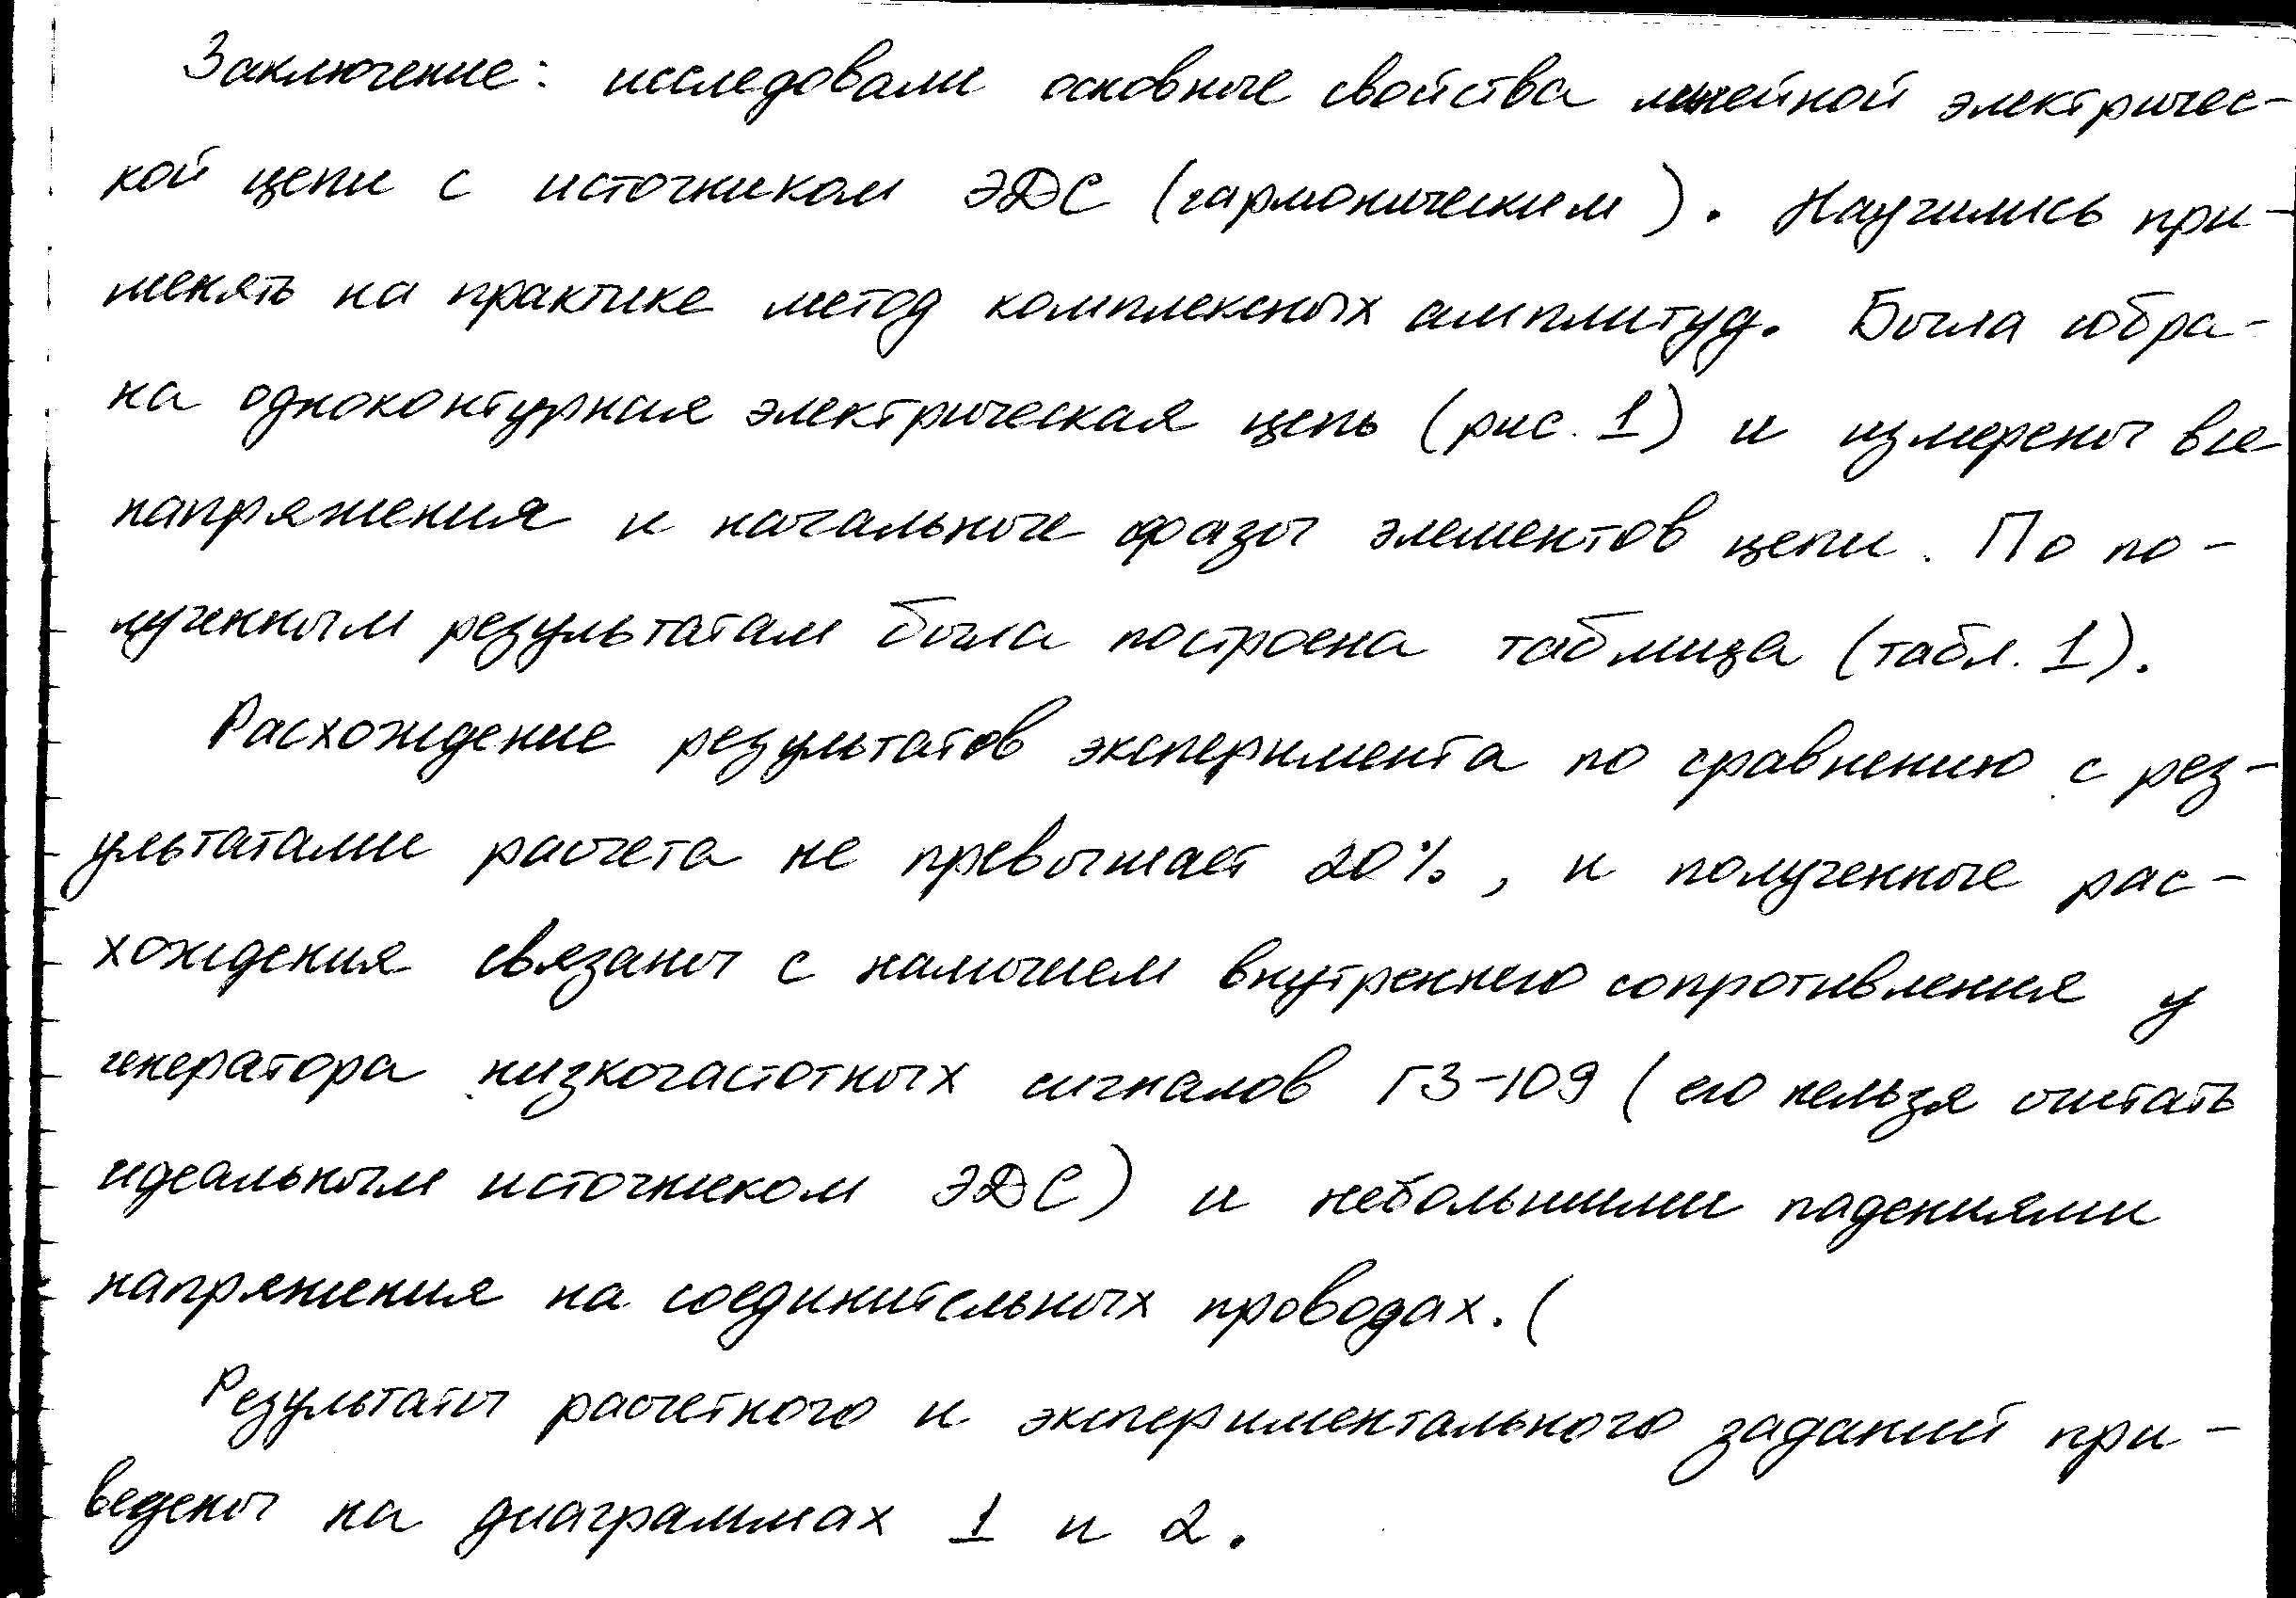 Заключение: исследовали основные свойства линейной электричес-
кой цепи с источником ЭДС (гармоническим). Научились при-
менять на практике метод комплексных амплитуд. Была собра-
на одноконтурная электрическая цепь (рис. 1) и измерены все
напряжения и начальные фазы элементов цепи. По по-
лученным результатам была построена таблица (табл. 1).
Расхождение результатов эксперимента по сравнению с рез-
ультатами расчета не превышает 20%, и полученные рас-
хождения связаны с наличием внутреннего сопротивления у
генератора низкочастотных сигналов Г3-109 (его нельзя считать
идеальным источником ЭДС) и небольшими падениями
напряжения на соединительных проводах. (
Результаты расчетного и экспериментального заданий при-
ведены на диаграммах 1 и 2.